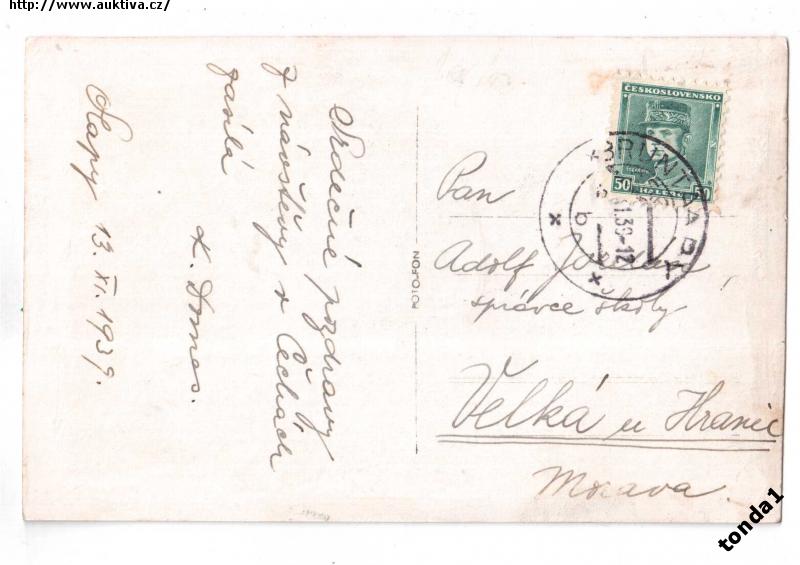 http://www.auktiva.cz/
Srdečné pozdravy
z návštěvy v Čechách
zasílá
K. Domes.
Slapy 13. XI. 1939.
FOTO-FON
ČESKOSLOVENSKO
50 50
HALÉŘŮ
39-12
b
Pan
Adolf
správce školy
Velká u Hranic
Morava.
tonda1